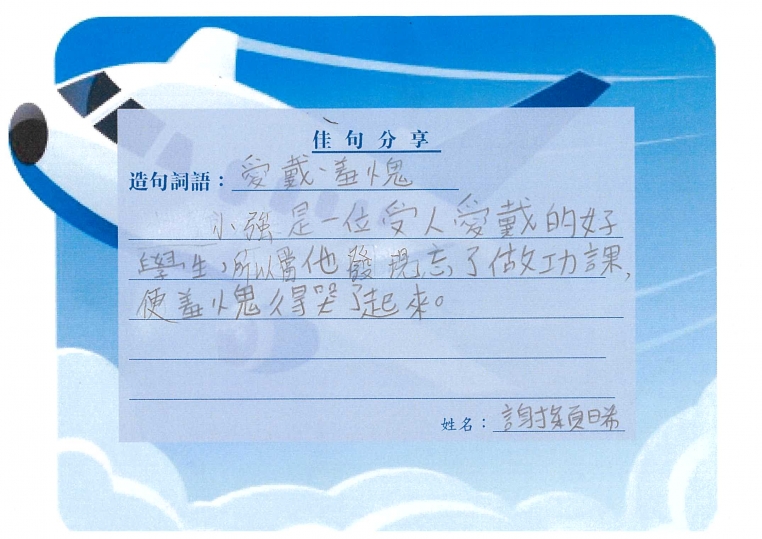 佳句分享
造句詞語：愛戴、羞愧
小強是一位受人愛戴的好
學生，所以當他發現忘了做功課，
便羞愧得哭了起來。
姓名：謝穎晞